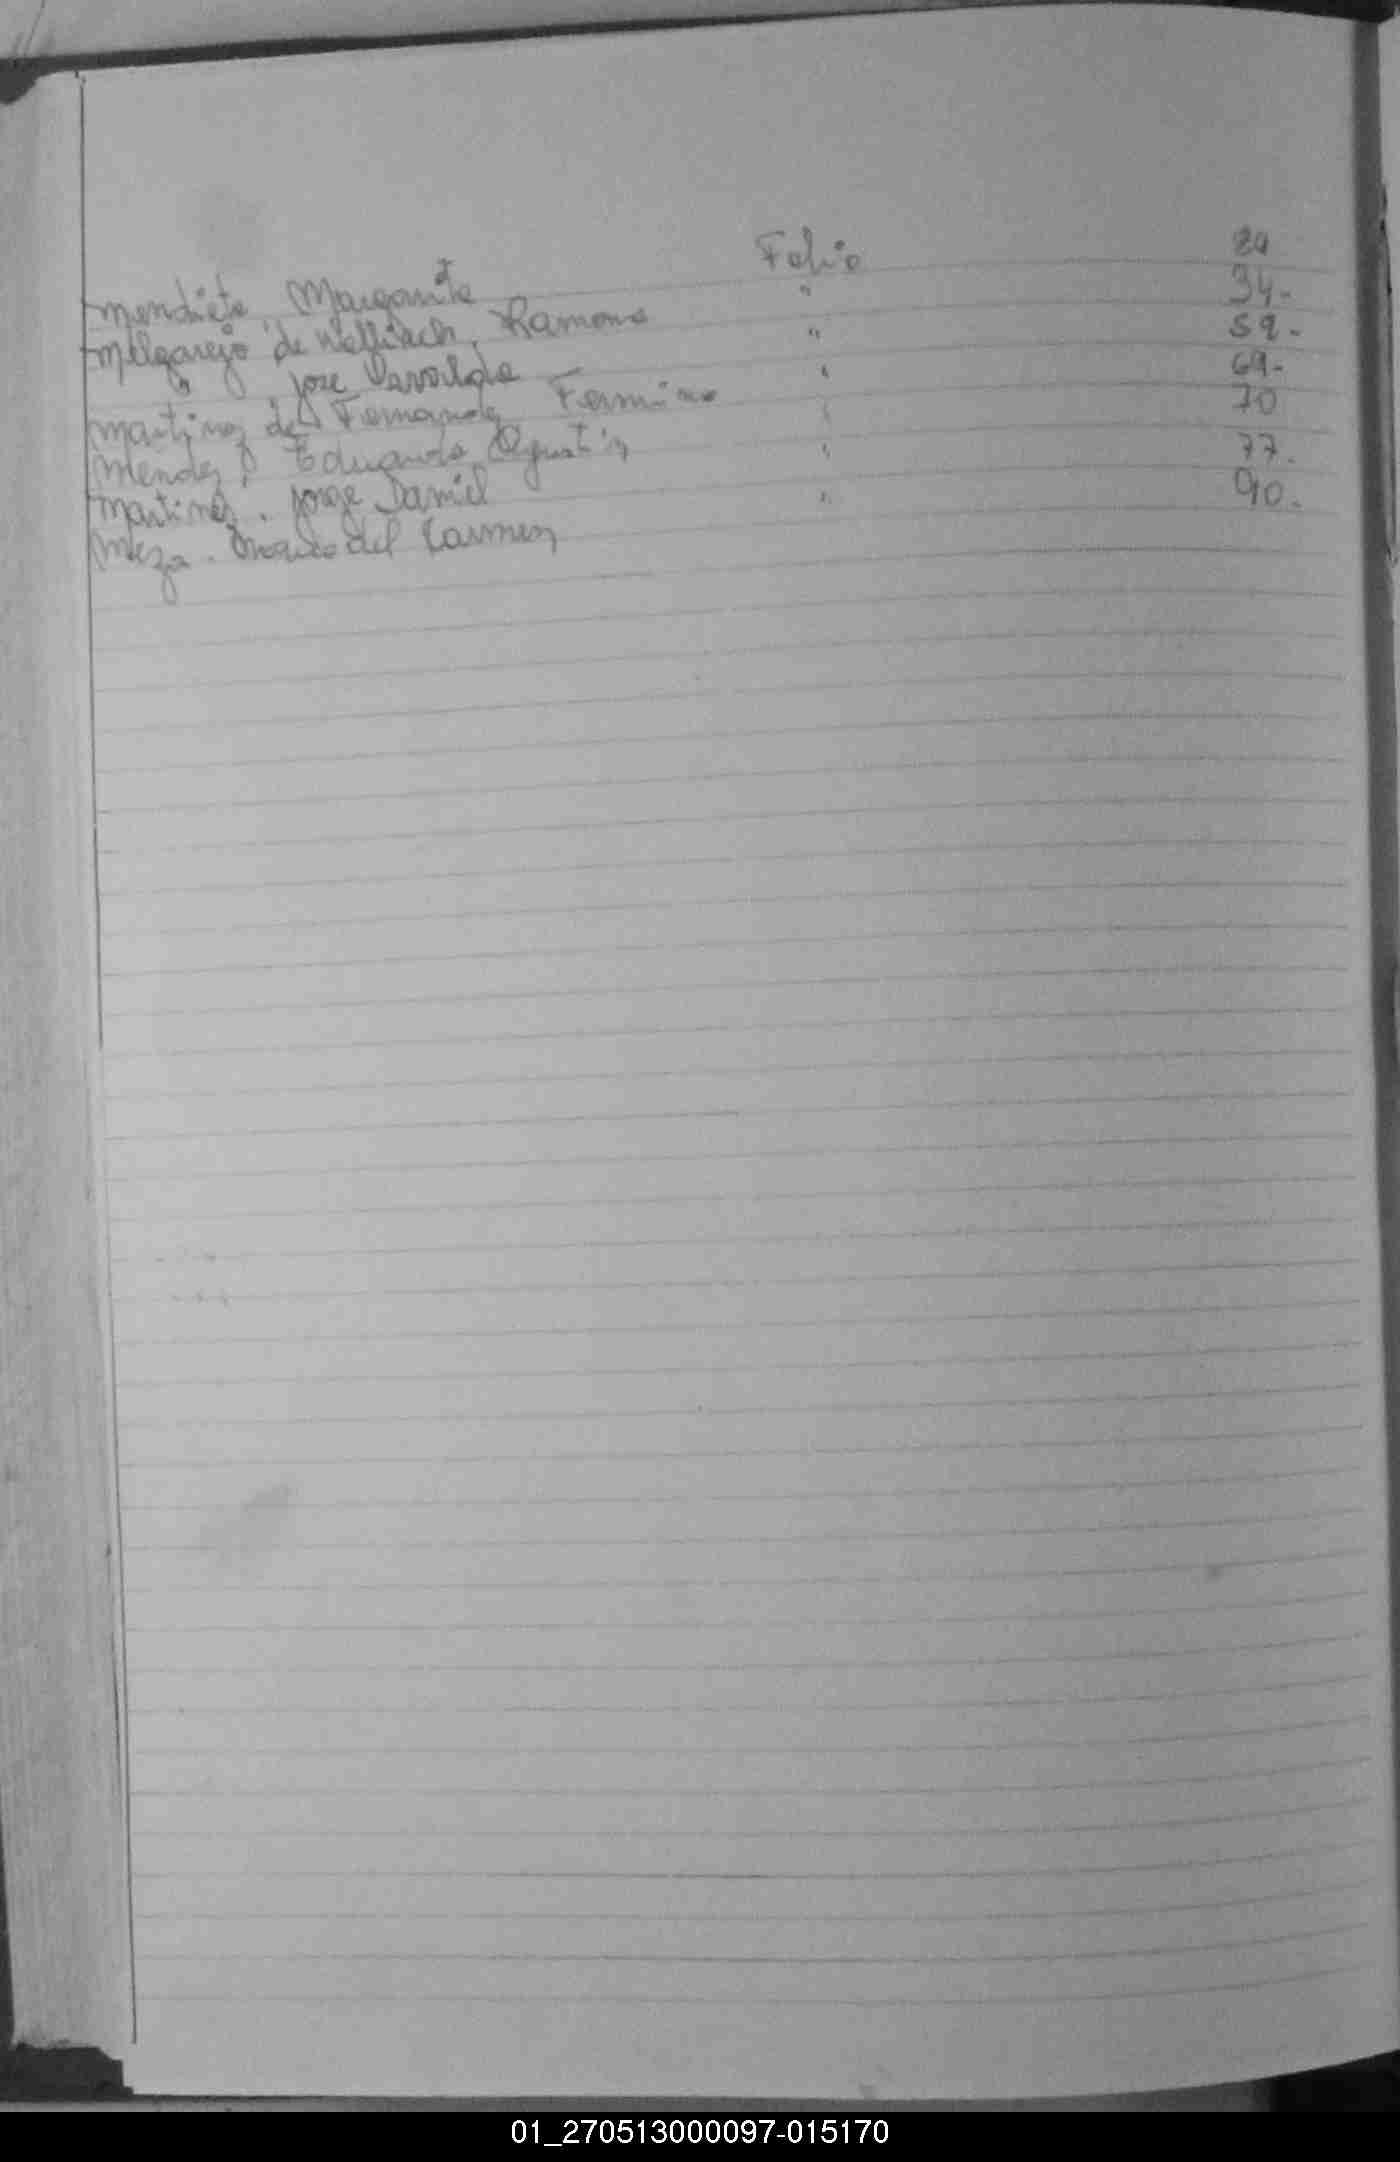 Mendieta Margarita Folio 24
Melgarejo de Ramona " 34-
" José " 59-
Martinez de Fernandez Fermina " 69-
Mendez, Eduardo Agustin " 70
Martinez. Jorge Daniel " 77.
Meza. Maria del Carmen " 90.
01_270513000097-015170